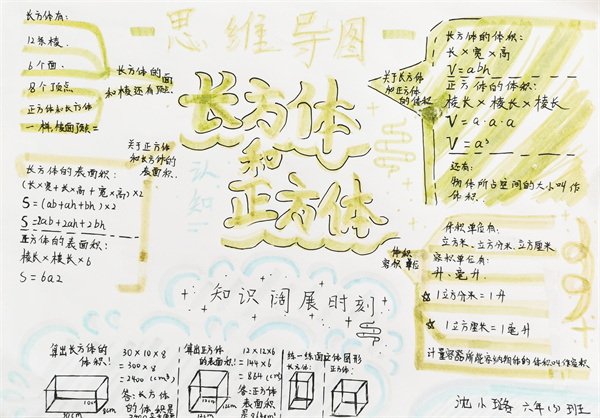 思维导图
长方体和正方体
认知
长方体有:
12条棱.
6个面.
8个顶点
正方体和长方体
一样,棱面顶点=
长方体的面
和棱还有顶点.
关于正方体
和长方体的
表面积.
长方体的表面积:
(长×宽+长×高+宽×高)×2
S=(ab+ah+bh)×2
S=2ab+2ah+2bh
正方体的表面积:
棱长×棱长×6
S=6a2
关于长方体
和正方体
的体积
长方体的体积:
长×宽×高
V=abh
正方体的体积:
棱长×棱长×棱长
V=a·a·a
V=a³
还有:
物体所占空间的大小叫作
体积.
体积
容积单位
体积单位有:
立方米、立方分米、立方厘米
容积单位有:
升、毫升
☆1立方分米=1升
☆1立方厘米=1毫升
计量容器所能容纳物体的体积叫作容积
知识阔展时刻
算出长方体的
体积!
30×10×8
=300×8
=2400(cm³)
答:长方体
的体积是
算出正方体
的表面积!
12×12×6
=144×6
=864(cm²)
答:正方体
的表面积
练一练画立体图形
长方体:
正方体:
沈小璐 六年(1)班